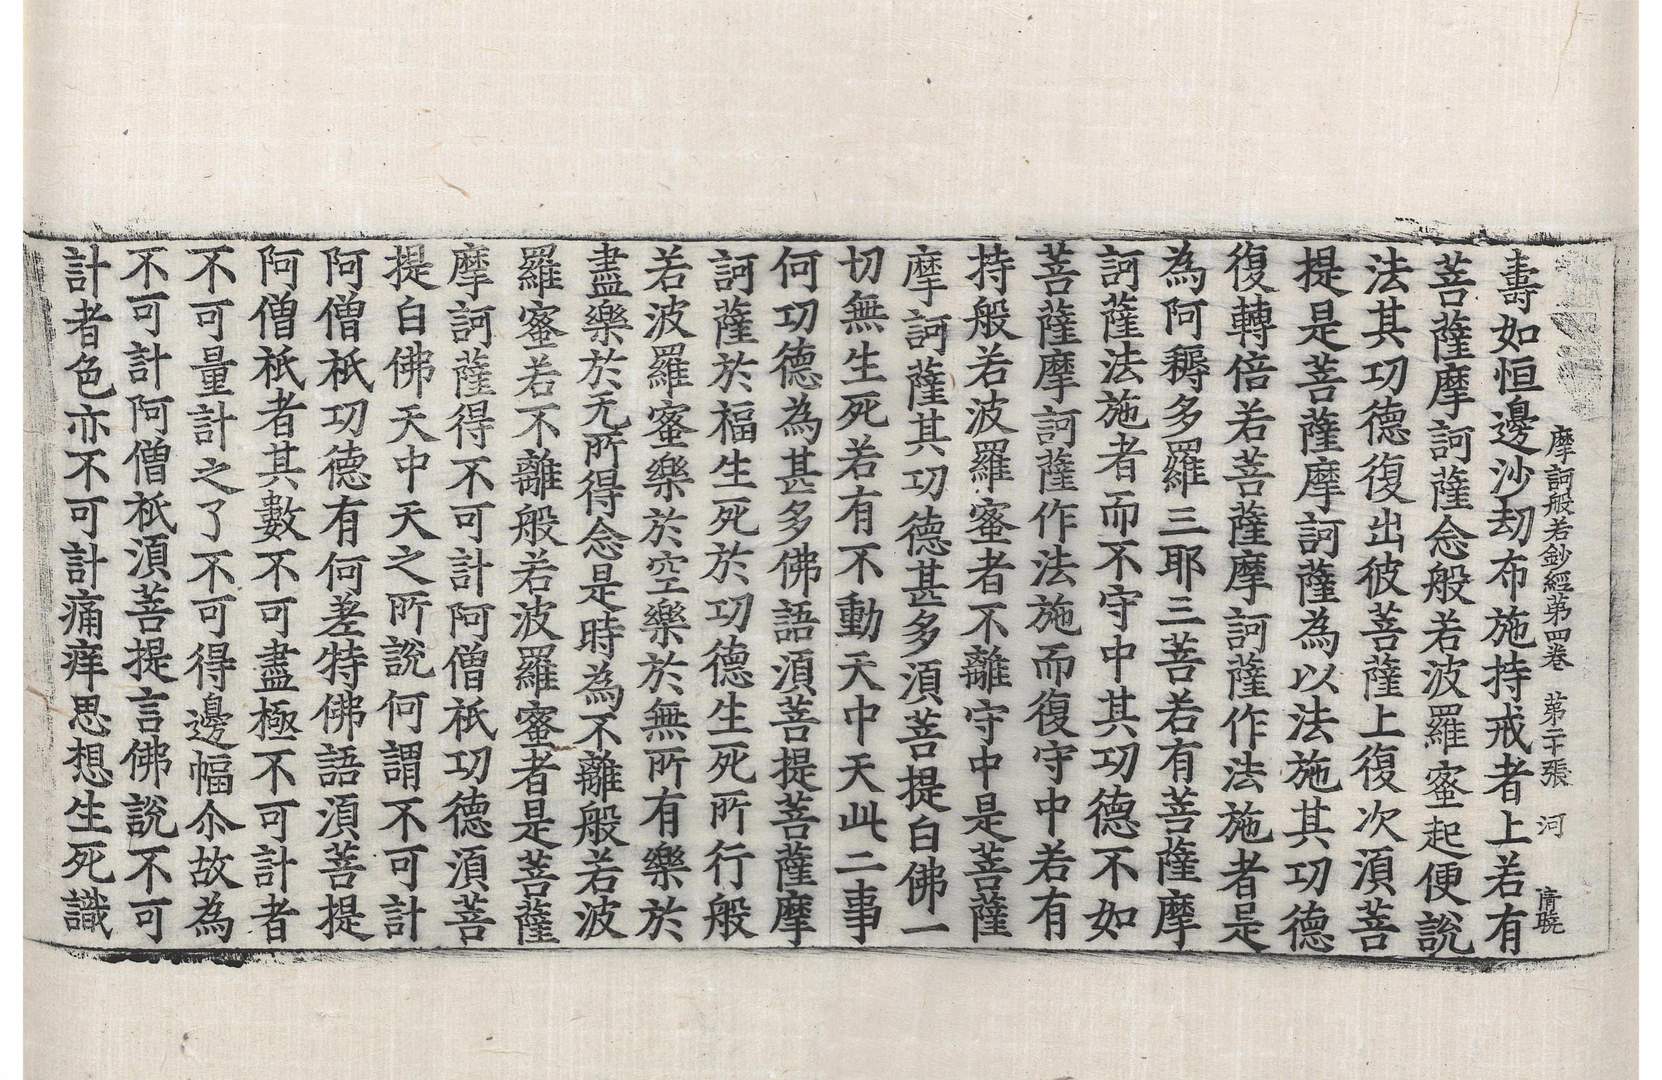 摩訶般若鈔經第四卷　第二十張　河
壽如恒邊沙劫布施持戒者上若有
菩薩摩訶薩念般若波羅蜜起便說
法其功德復出彼菩薩上復次須菩
提是菩薩摩訶薩為以法施其功德
復轉倍若菩薩摩訶薩作法施者是
為阿耨多羅三耶三菩若有菩薩摩
訶薩法施者而不守中其功德不如
菩薩摩訶薩作法施而復守中若有
持般若波羅蜜者不離守中是菩薩
摩訶薩其功德甚多須菩提白佛一
切無生死若有不動天中天此二事
何功德為甚多佛語須菩提菩薩摩
訶薩於福生死於功德生死所行般
若波羅蜜樂於空樂於無所有樂於
盡樂於无所得念是時為不離般若波
羅蜜若不離般若波羅蜜者是菩薩
摩訶薩得不可計阿僧祇功德須菩
提白佛天中天之所說何謂不可計
阿僧祇功德有何差特佛語須菩提
阿僧祇者其數不可盡極不可計者
不可量計之了不可得邊幅尒故為
不可計阿僧祇須菩提言佛說不可
計者色亦不可計痛痒思想生死識